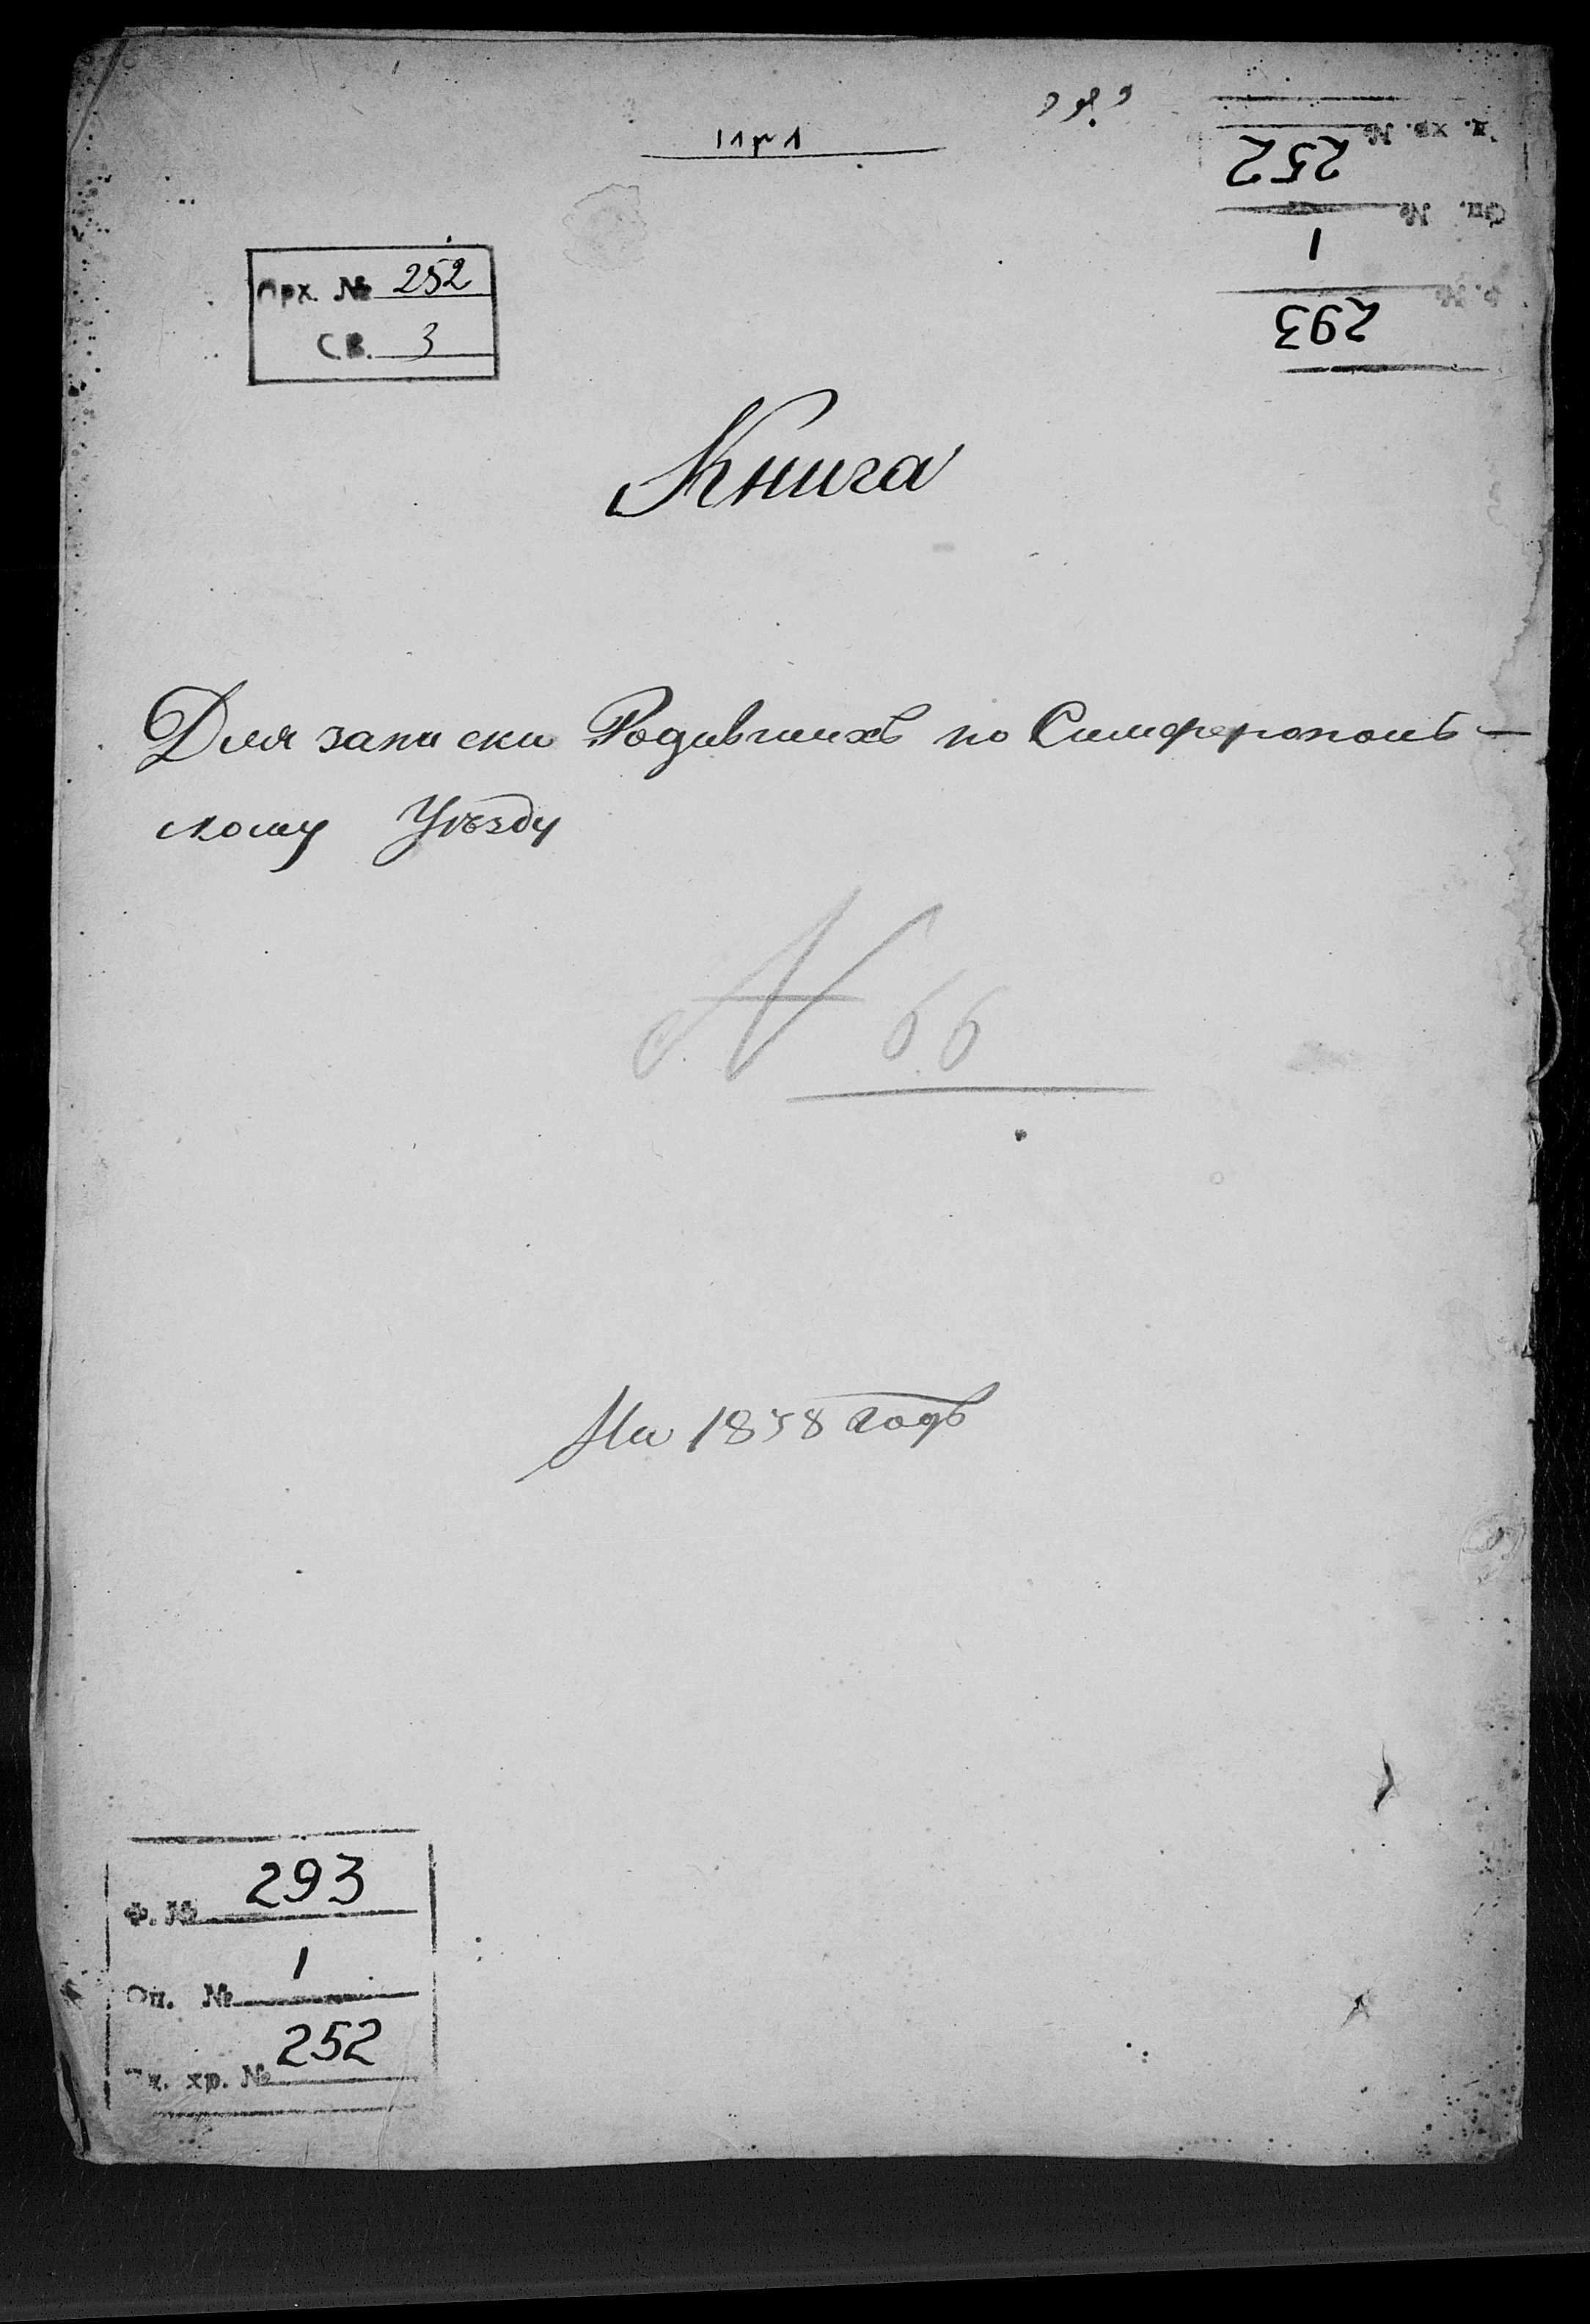 وجود
١٨٣٨
Ед. хр. № 252
Оп. № 1
Ф. № 293
Арх. № 252
Св. 3
Книга
Для записки Родившихъ по Симферополь-
скому Уѣзду
№ 66
На 1838 годъ
Ф. № 293
Оп. № 1
Ед. хр. № 252